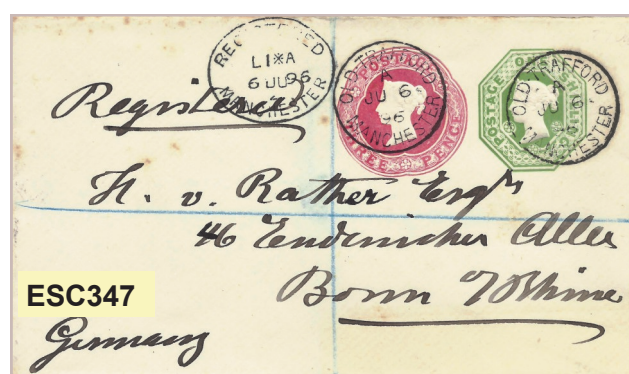 REGISTERED
L1*A
6 JU 96
MANCHESTER
OLD TRAFFORD
A
JU 6
96
MANCHESTER
POSTAGE
THREE PENCE
OLD TRAFFORD
A
JU 6
96
MANCHESTER
POSTAGE
Registered
H. v. Rather Esqre
46 Endenicher Allee
Bonn a/Rhine
ESC347
Germany